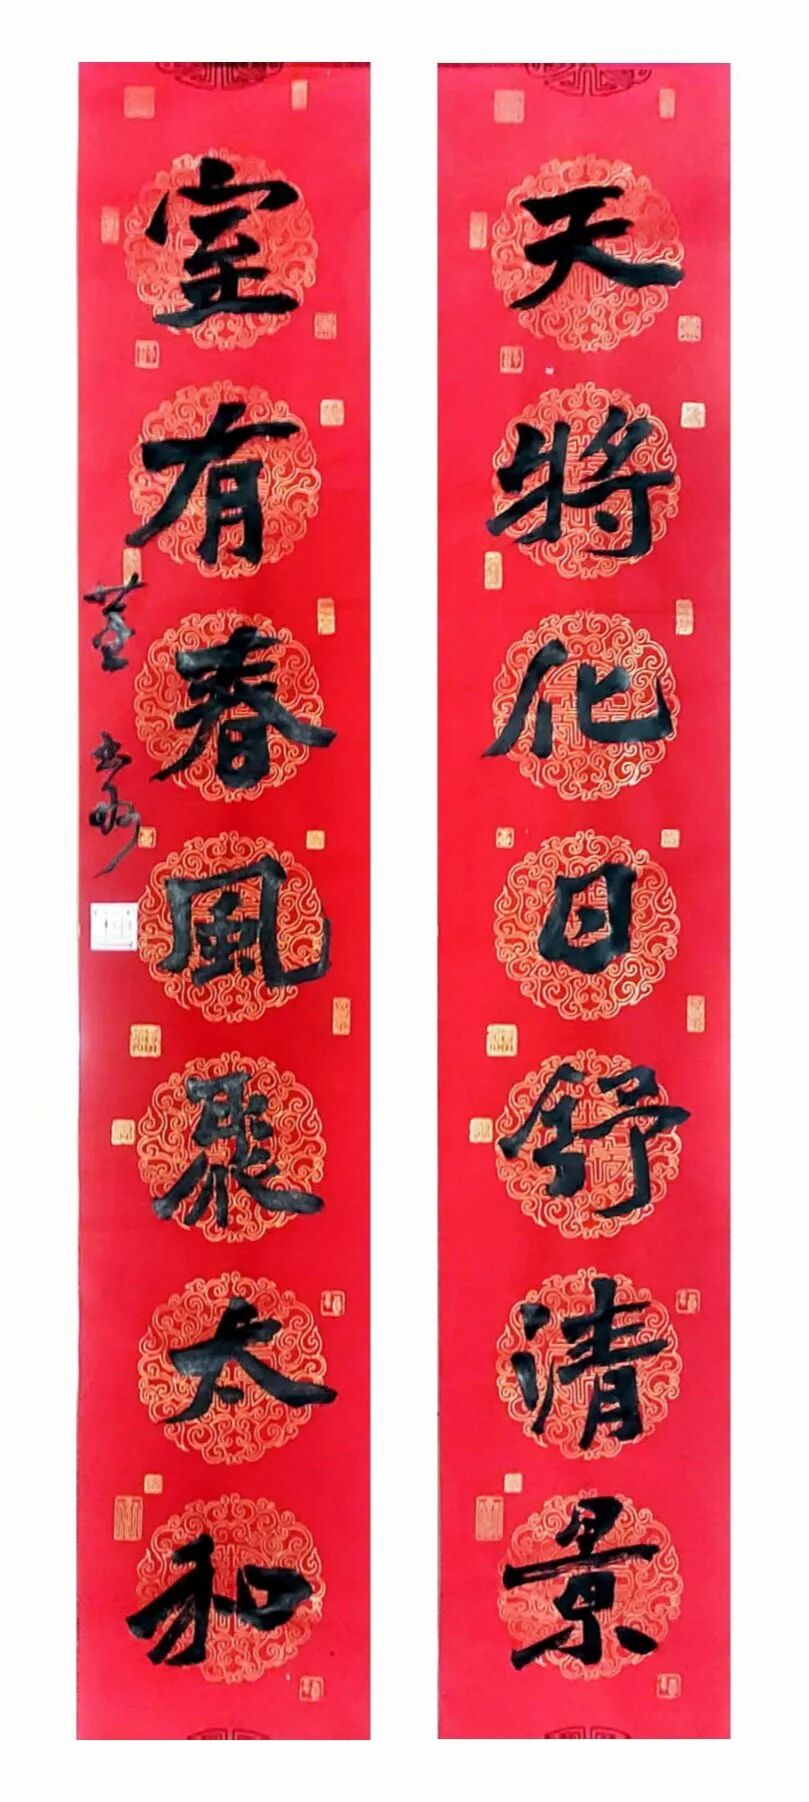 天將化日舒清景
室有春風聚太和